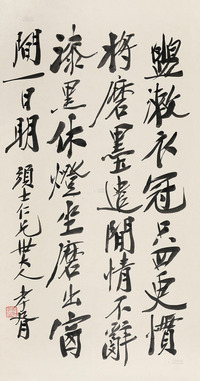 盥漱衣冠只四更慣
將磨墨遣閒情不辭
漆黑休燈坐磨出窗
間一日明
頌士仁兄世大人 孝胥